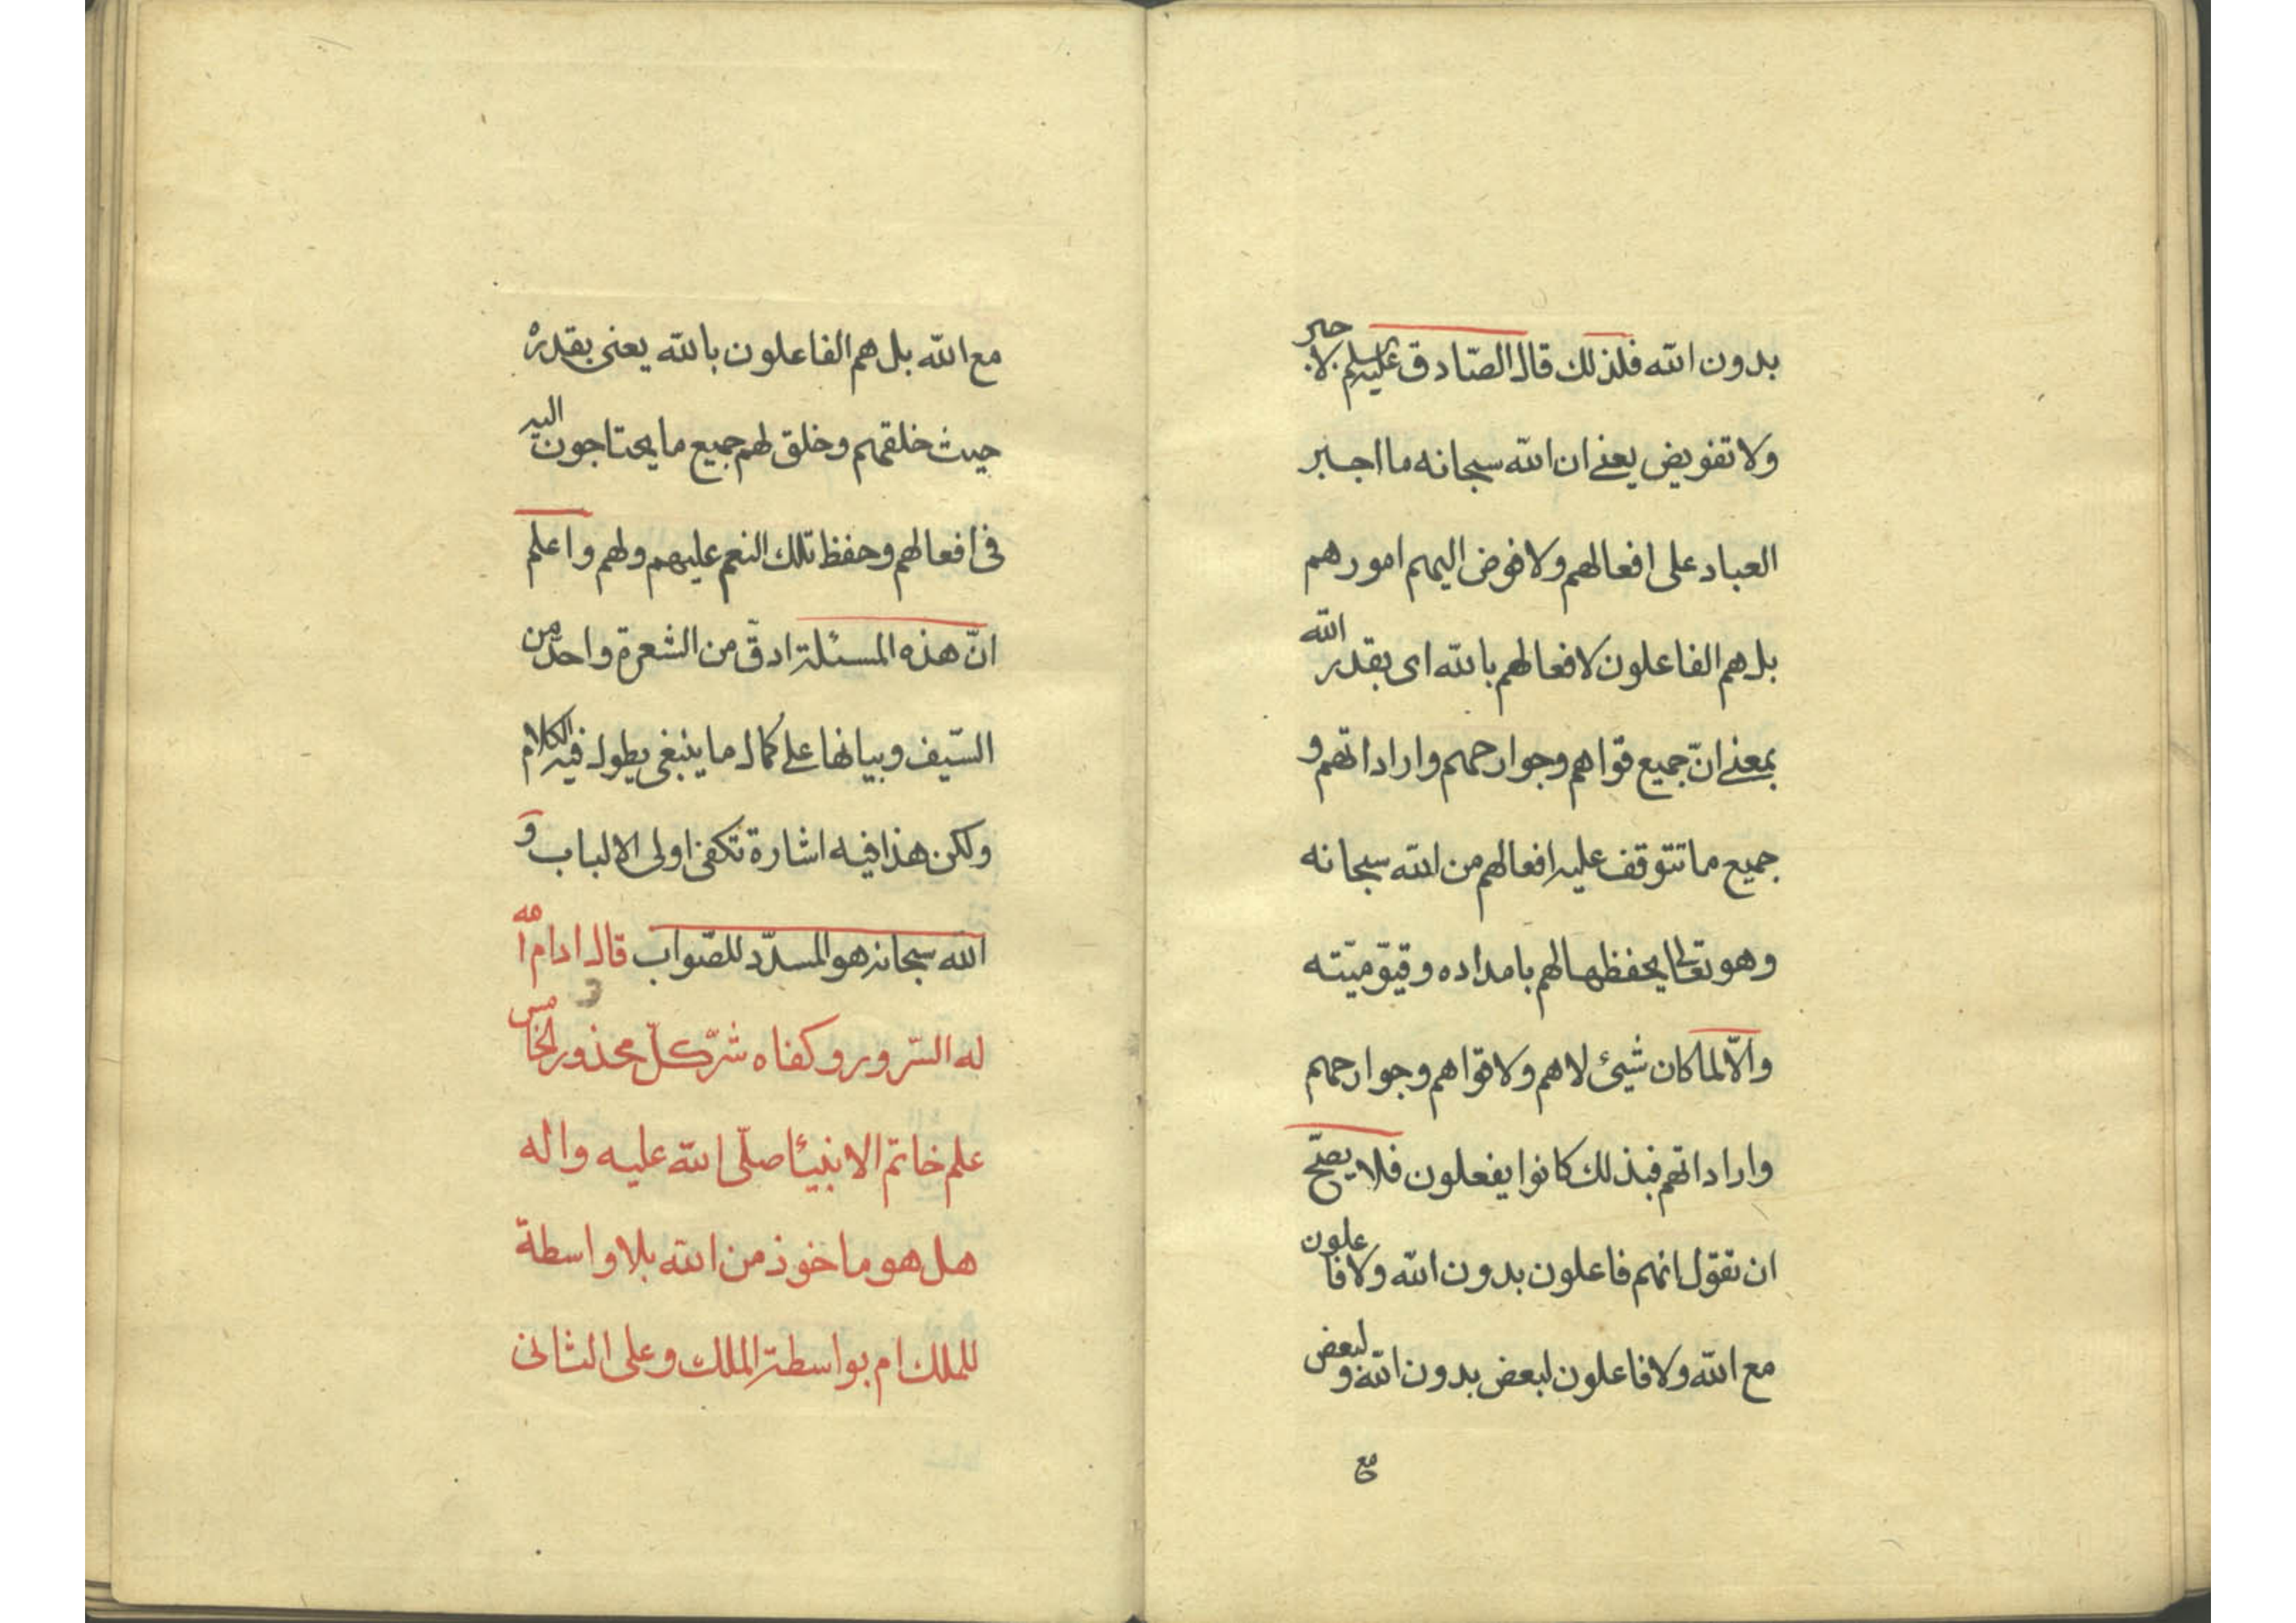 بدون الله فلذلك قال الصّادق عليه السلم لا جبر
ولا تفويض يعنے ان الله سبحانه ما اجبر
العباد على افعالهم ولا فوض اليهم امورهم
بل هم الفاعلون لافعالهم بالله اى بقدر الله
بمعنے انّ جميع قوّاهم وجوارحهم واراداتهم و
جميع ما تتوقف عليه افعالهم من الله سبحانه
وهو تعالى يحفظها لهم بامداده وقيّوميّته
والّا لما كان شيئ لا هم ولا قوّاهم وجوارحهم
واراداتهم فبذلك كانوا يفعلون فلا يصحّ
ان تقول انهم فاعلون بدون الله ولا فاعلون
مع الله ولا فاعلون لبعض بدون الله ولبعض
مع
مع الله بل هم الفاعلون بالله يعنى بقدره
حيث خلقهم وخلق لهم جميع ما يحتاجون اليه
فى افعالهم وحفظ تلك النعم عليهم ولهم واعلم
انّ هذه المسئلة ادقّ من الشعرة واحدّ من
السّيف وبيانها على كمال ما ينبغى يطول فيه الكلام
ولكن هذا فيه اشارة تكفى اولى الالباب و
الله سبحانه هو المسدّد للصّواب قال ادام الله
له السّرور وكفاه شرّ كلّ محذور الخامس
علم خاتم الانبيئا صلّى الله عليه واله
هل هو ماخوذ من الله بلا واسطة
للملك ام بواسطة الملك وعلى الثانى